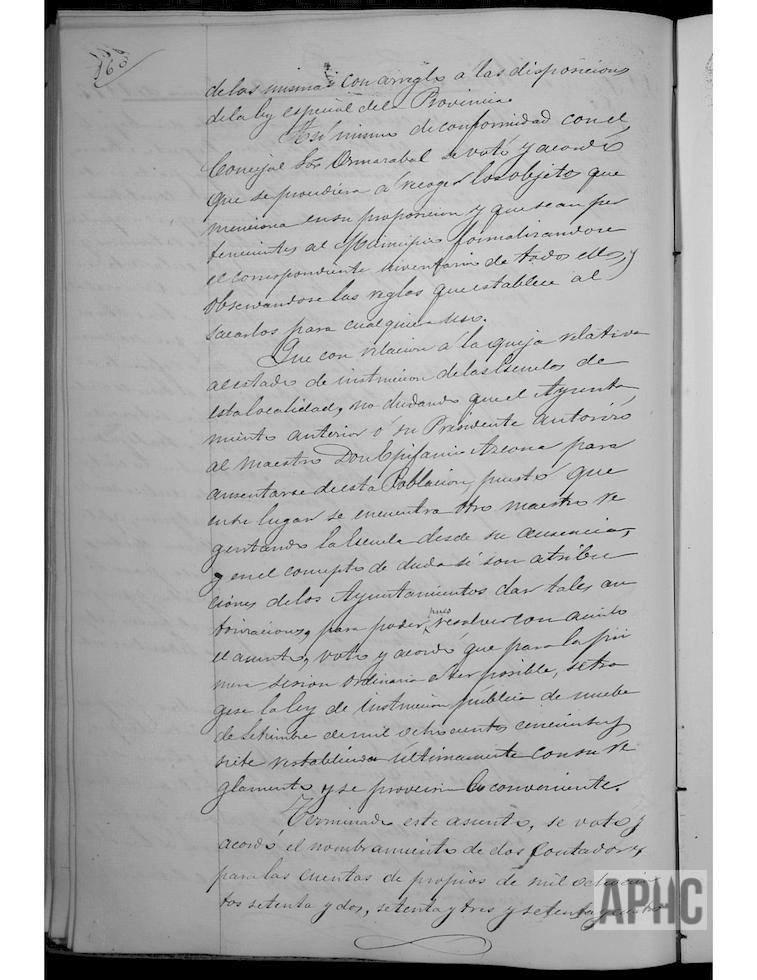 160
de las mismas con arreglo a las disposiciones
de la ley especial de la Provincia.
Así mismo de conformidad con el
Concejal Sor. Ormarabal se votó y acordó
que se procediera á recoger los objetos que
menciona en su proposicion y que sean per
tenecientes al Municipio formalizandose
el correspondiente inventario de todos ellos, y
observandose las reglas que establece al
sacarlos para cualquiera uso.
Que con relacion á la queja relativa
al estado de instruccion de las Escuelas de
esta localidad, no dudando que el Ayunta
miento anterior ó su Presidente autorizó
al maestro Don Epifanio Azcona para
ausentarse de esta Poblacion, puesto que
en su lugar se encuentra otro maestro re
gentando la Escuela desde su ausencia,
y en el concepto de duda si son atribu
ciones de los Ayuntamientos dar tales au
torizaciones, para poder pues resolver con acierto
el asunto, votó y acordó que para la pri
mera sesion ordinaria á ser posible, se tra
gese la ley de instruccion pública de nuebe
de Setiembre de mil ochocientos cincuenta y
siete restablecida últimamente con su re
glamento y se proveeria lo conveniente.
Terminado este asunto, se votó y
acordó el nombramiento de dos Contadores
para las cuentas de propios de mil ochocien
tos setenta y dos, setenta y tres y setenta y cuatro
APHC